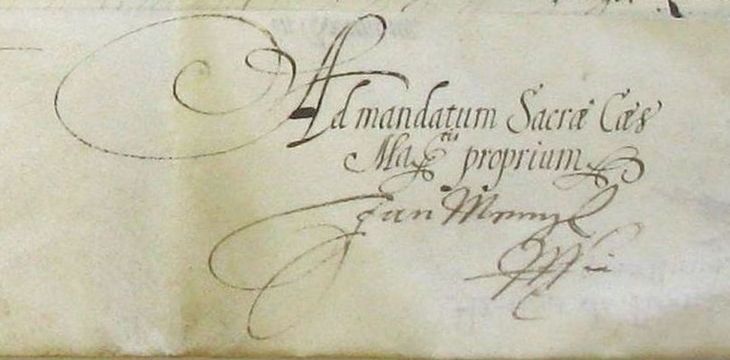 Ad mandatum Sacræ Cæs
Ma^tis proprium
Jan Menzl